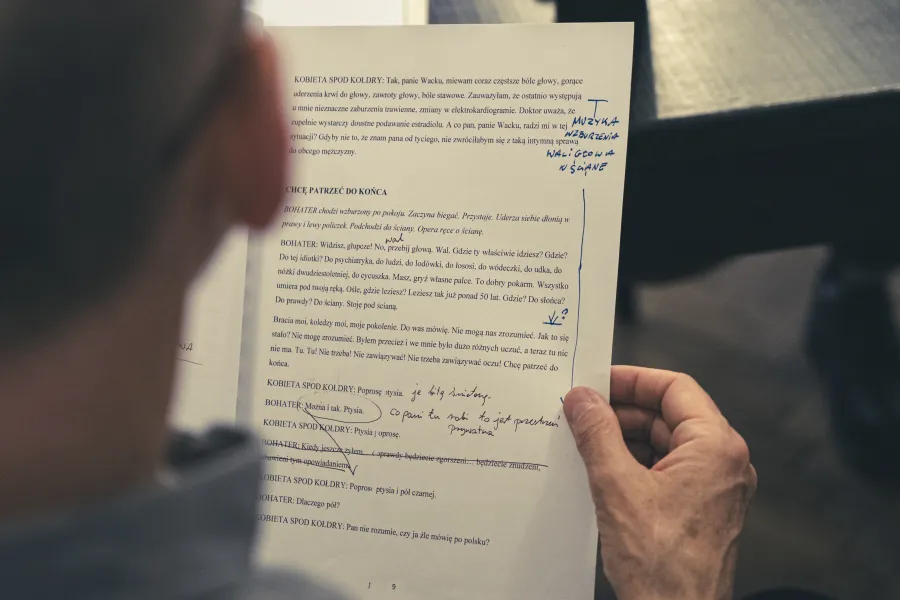 KOBIETA SPOD KOŁDRY: Tak, panie Wacku, miewam coraz częstsze bóle głowy, gorące
uderzenia krwi do głowy, zawroty głowy, bóle stawowe. Zauważyłam, że ostatnio występują
u mnie nieznaczne zaburzenia trawienne, zmiany w elektrokardiogramie. Doktor uważa, że
zupełnie wystarczy doustne podawanie estradiolu. A co pan, panie Wacku, radzi mi w tej
sytuacji? Gdyby nie to, że znam pana od tyciego, nie zwróciłabym się z taką intymną sprawą
do obcego mężczyzny.
MUZYKA
WZBURZENIA
WALI GŁOWĄ
W ŚCIANE
CHCĘ PATRZEĆ DO KOŃCA
BOHATER chodzi wzburzony po pokoju. Zaczyna biegać. Przystaje. Uderza siebie dłonią w
prawy i lewy policzek. Podchodzi do ściany. Opera ręce o ścianę.
wal
BOHATER: Widzisz, głupcze! No, przebij głową. Wal. Gdzie ty właściwie idziesz? Gdzie?
Do tej idiotki? Do psychiatryka, do ludzi, do lodówki, do łososi, do wódeczki, do udka, do
nóżki dwudziestoletniej, do cycuszka. Masz, gryź własne palce. To dobry pokarm. Wszystko
umiera pod twoją ręką. Ośle, gdzie leziesz? Leziesz tak już ponad 50 lat. Gdzie? Do słońca?
Do prawdy? Do ściany. Stoję pod ścianą.
?
Bracia moi, koledzy moi, moje pokolenie. Do was mówię. Nie mogą nas zrozumieć. Jak to się
stało? Nie mogę zrozumieć. Byłem przecież i we mnie było dużo różnych uczuć, a teraz tu nic
nie ma. Tu. Tu! Nie trzeba! Nie zawiązywać! Nie trzeba zawiązywać oczu! Chcę patrzeć do
końca.
KOBIETA SPOD KOŁDRY: Poproszę ptysia. je bitą śmietaną
BOHATER: Można i tak. Ptysia. co pani tu robi to jest przestrzeń
prywatna
KOBIETA SPOD KOŁDRY: Ptysia poproszę.
BOHATER: Kiedy jeszcze żyłem... sprawdy będziecie zgorszeni... będziecie znudzeni,
tym opowiadaniem
KOBIETA SPOD KOŁDRY: Poproszę ptysia i pół czarnej.
BOHATER: Dlaczego pół?
KOBIETA SPOD KOŁDRY: Pan nie rozumie, czy ja źle mówię po polsku?
19